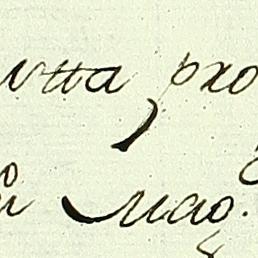 utta pro
di Mag.